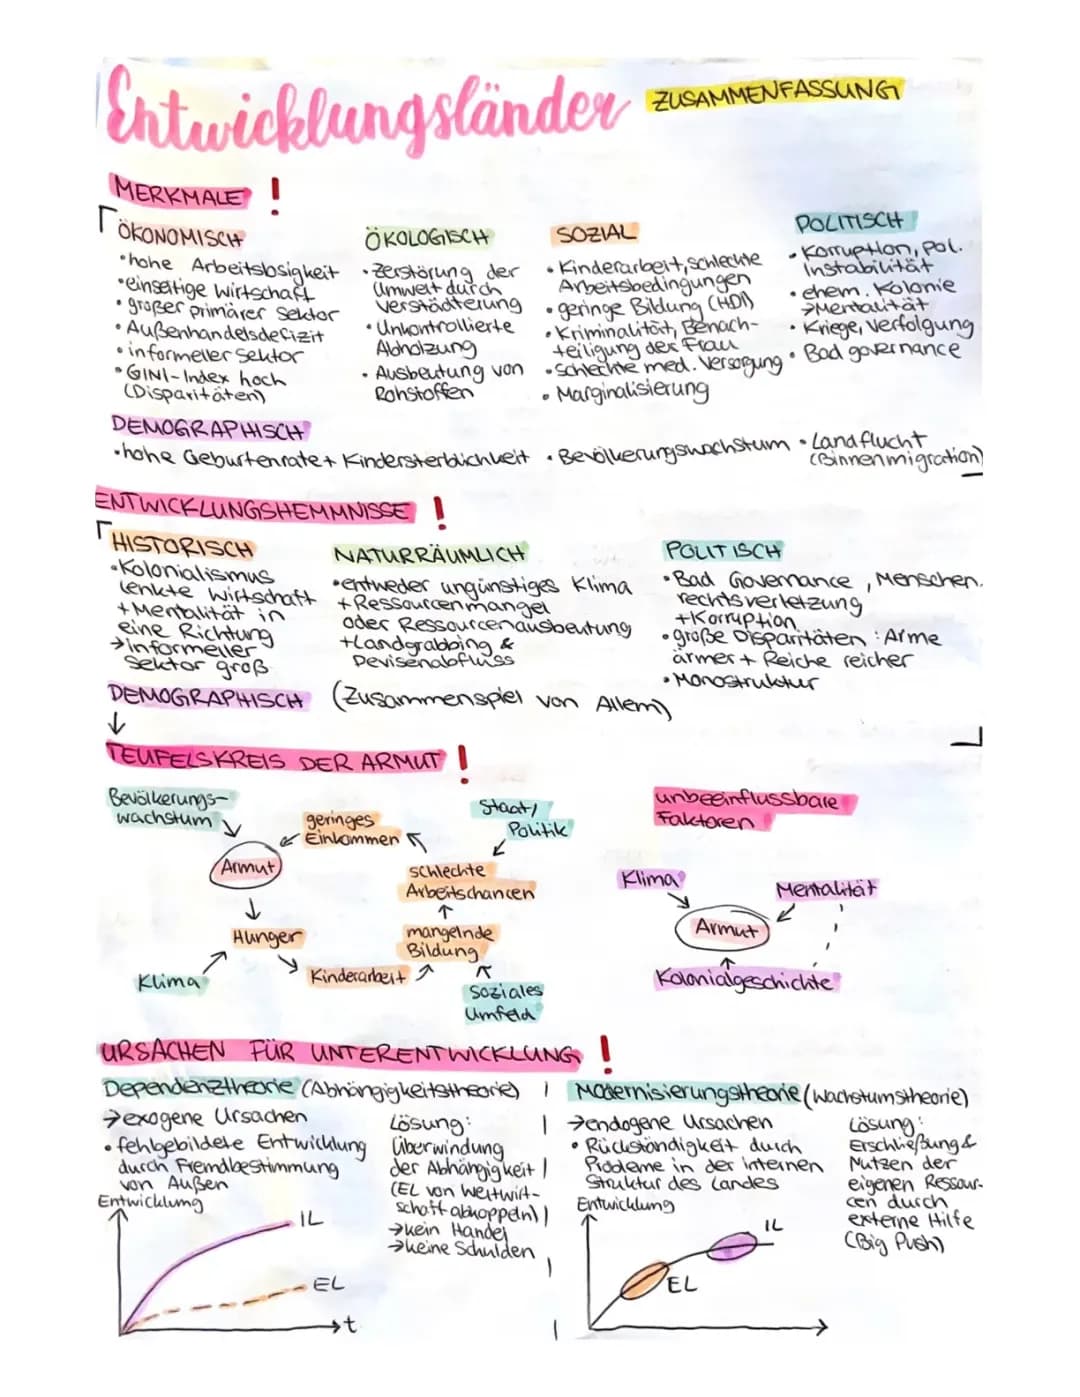 Entwicklungsländer
ZUSAMMENFASSUNG
MERKMALE !
ÖKONOMISCH
• hohe Arbeitslosigkeit
• einseitige Wirtschaft
• großer primärer Sektor
• Außenhandelsdefizit
• informeller Sektor
• GINI-Index hoch
(Disparitäten)
ÖKOLOGISCH
• Zerstörung der
Umwelt durch
Verstädterung
• Unkontrollierte
Abholzung
• Ausbeutung von
Rohstoffen
SOZIAL
• Kinderarbeit, schlechte
Arbeitsbedingungen
• geringe Bildung (HDI)
• Kriminalität, Benach-
teiligung der Frau
• schlechte med. Versorgung
• Marginalisierung
POLITISCH
• Korruption, pol.
Instabilität
• ehem. Kolonie
→Mentalität
• Kriege, Verfolgung
• Bad governance
DEMOGRAPHISCH
• hohe Geburtenrate + Kindersterblichkeit • Bevölkerungswachstum • Landflucht
(Binnenmigration)
ENTWICKLUNGSHEMMNISSE !
HISTORISCH
• Kolonialismus
lenkte Wirtschaft
+ Mentalität in
eine Richtung
→informeller
Sektor groß
NATURRÄUMLICH
• entweder ungünstiges Klima
+ Ressourcenmangel
oder Ressourcenausbeutung
+Landgrabbing &
Devisenabfluss
POLITISCH
• Bad Governance, Menschen.
rechtsverletzung
+Korruption
• große Disparitäten: Arme
ärmer + Reiche reicher
• Monostruktur
DEMOGRAPHISCH (Zusammenspiel von Allem)
↓
TEUFELSKREIS DER ARMUT !
Bevölkerungs-
wachstum
geringes
Einkommen
Staat/
Politik
Armut
schlechte
Arbeitschancen
Hunger
mangelnde
Bildung
Klima
Kinderarbeit
Soziales
Umfeld
unbeeinflussbare
Faktoren
Klima
Mentalität
Armut
Kolonialgeschichte
URSACHEN FÜR UNTERENTWICKLUNG !
Dependenztheorie (Abhängigkeitstheorie)
→exogene Ursachen
• fehlgebildete Entwicklung
durch Fremdbestimmung
von Außen
Lösung:
Überwindung
der Abhängigkeit
(EL von Weltwirt-
schaft abkoppeln)
→kein Handel
→keine Schulden
Entwicklung
IL
EL
t
Modernisierungstheorie (Wachstumstheorie)
→endogene Ursachen
• Rückständigkeit durch
Probleme in der internen
Struktur des Landes
Lösung:
Erschließung &
Nutzen der
eigenen Ressour-
cen durch
externe Hilfe
(Big Push)
Entwicklung
IL
EL